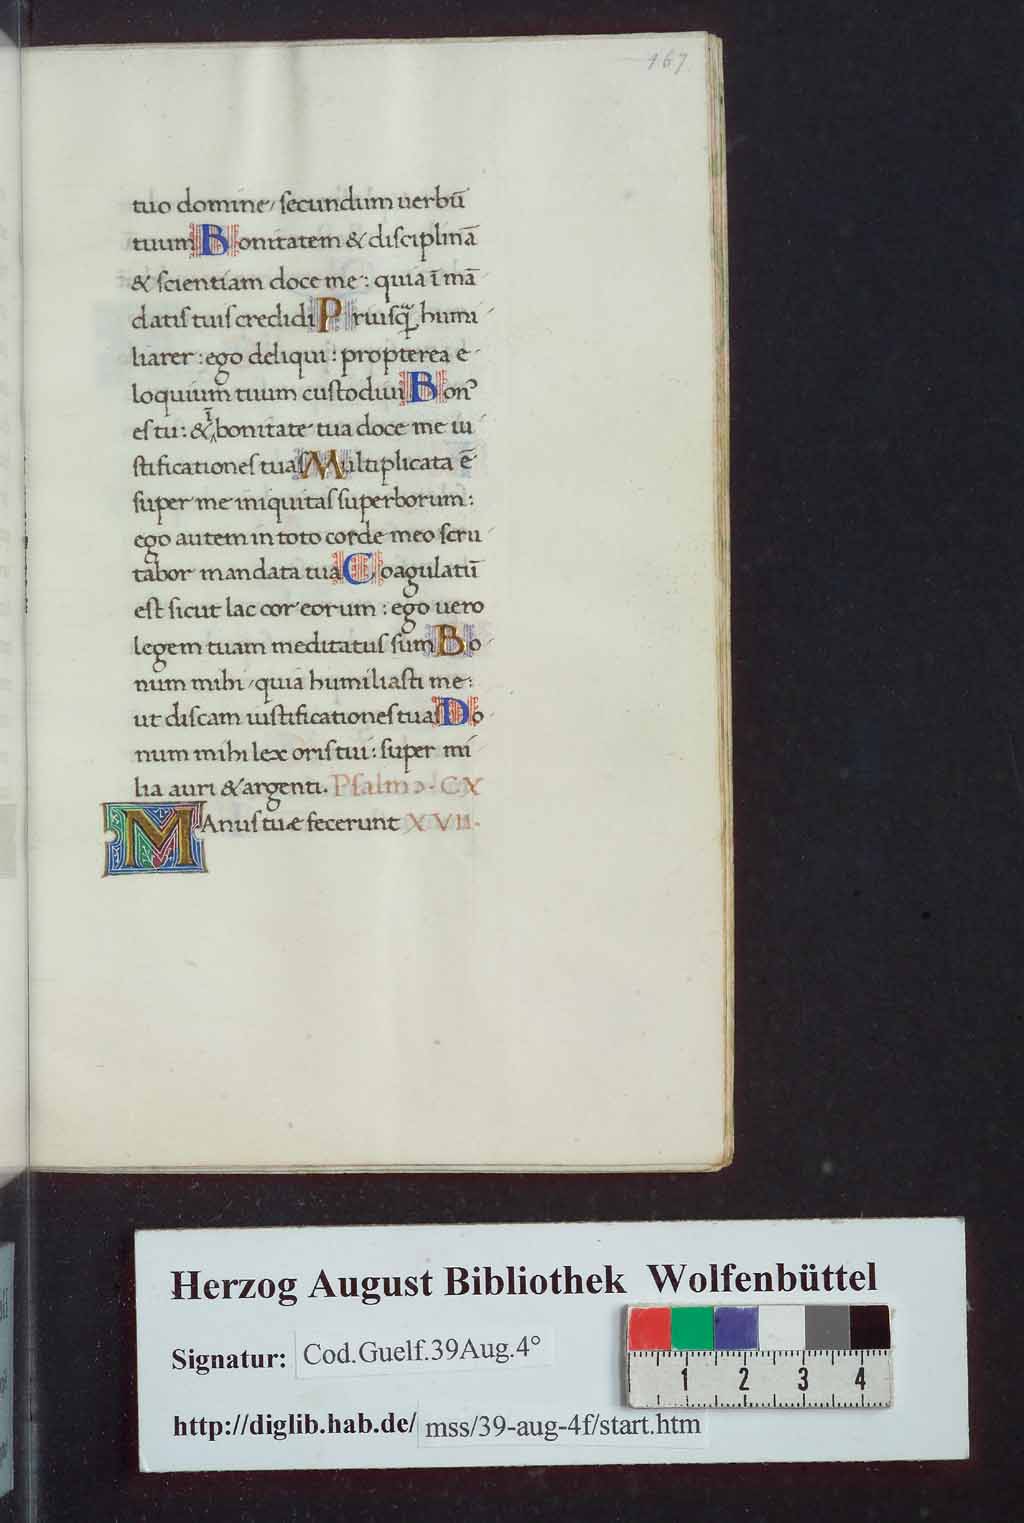 167
tuo domine, secundum uerbū
tuum Bonitatem & disciplinā
& scientiam doce me: quia ī mā
datis tuis credidi Priusq̄ humi
liarer: ego deliqui: propterea e
loquium tuum custodiui Bonꝰ
es tu: & ī bonitate tua doce me iu
stificationes tuas Multiplicata ē
super me iniquitas superborum:
ego autem in toto corde meo scru
tabor mandata tua Coagulatū
est sicut lac cor eorum: ego uero
legem tuam meditatus sum Bo
num mihi, quia humiliasti me:
ut discam iustificationes tuas Bo
num mihi lex oris tui: super mi
lia auri & argenti. Psalmo. CX
MAnus tuæ fecerunt XVII.
Herzog August Bibliothek Wolfenbüttel
Signatur: Cod.Guelf.39Aug.4°
1 2 3 4
http://diglib.hab.de/ mss/39-aug-4f/start.htm